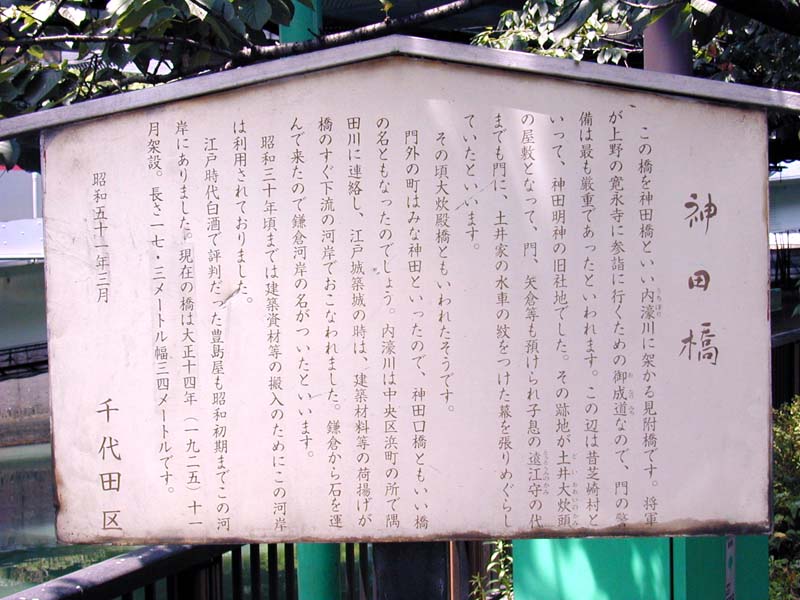 神田橋
この橋を神田橋といい内濠川に架かる見附橋です。将軍
が上野の寛永寺に参詣に行くための御成道なので、門の警
備は最も厳重であったといわれます。この辺は昔芝崎村と
いって、神田明神の旧社地でした。その跡地が土井大炊頭
の屋敷となって、門、矢倉等も預けられ子息の遠江守の代
までも門に、土井家の水車の紋をつけた幕を張りめぐらし
ていたといいます。
その頃大炊殿橋ともいわれたそうです。
門外の町はみな神田といったので、神田口橋ともいい橋
の名ともなったのでしょう。内濠川は中央区浜町の所で隅
田川に連絡し、江戸城築城の時は、建築材料等の荷揚げが
橋のすぐ下流の河岸でおこなわれました。鎌倉から石を運
んで来たので鎌倉河岸の名がついたといいます。
昭和三十年頃までは建築資材等の搬入のためにこの河岸
は利用されておりました。
江戸時代白酒で評判だった豊島屋も昭和初期までこの河
岸にありました。現在の橋は大正十四年（一九二五）十一
月架設。長さ一七・三メートル幅三四メートルです。
昭和五十一年三月
千代田区